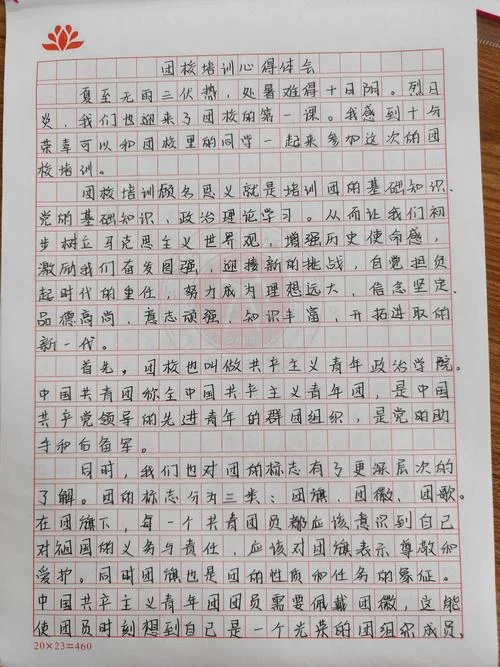 团校培训心得体会
夏至无雨三伏热，处暑难得十日阴。烈日
炎，我们也迎来了团校的第一课。我感到十与
荣幸可以和团校里的同学一起来参加这次的团
校培训。
团校培训顾名思义就是培训团的基础知识、
党的基础知识、政治理论学习。从而让我们初
步树立马克思主义世界观，增强历史使命感，
激励我们奋发图强，迎接新的挑战，自觉担负
起时代的重任，努力成为理想远大、信念坚定、
品德高尚、意志顽强、知识丰富、开拓进取的
新一代。
首先，团校也叫做共产主义青年政治学院。
中国共青团称全中国共产主义青年团，是中国
共产党领导的先进青年的群团组织，是党的助
手和后备军。
同时，我们也对团的标志有了更深层次的
了解。团的标志分为三类：团旗、团徽、团歌。
在团旗下，每一个共青团员都应该意识到自己
对祖国的义务与责任，应该对团旗表示尊敬和
爱护。同时团旗也是团的性质和任务的象征。
中国共产主义青年团团员需要佩戴团徽，这能
使团员时刻想到自己是一个光荣的团组织成员，
20×23=460